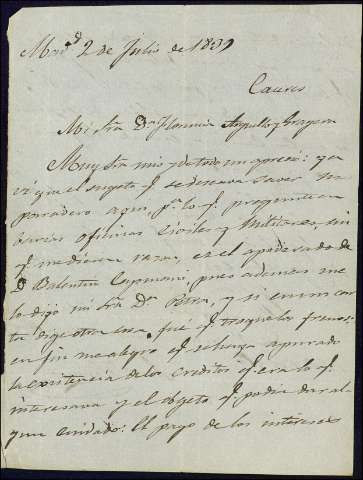 Mad.d 2 de Julio de 1839
Caceres
Mi Sra D.a Florencia Argüello y Grajera
Muy Sra mia y de todo mi aprecio: ya
vi que el sugeto q.e se deseava saver su
paradero aqui, p.a lo q.e pregunte en
barias oficinas Civiles y Militares, sin
q.e me dieran razon, es el apoderado de
D. Balentin pues ademas me
lo dijo mi Sra D.a Petra, y si en mi con
ta dige otra cosa, fue q.e los frenos:
en fin me alegro q.e se haya apurado
la existencia de los creditos q.e era lo q.e
interesava y el objeto q.e podia dar al
gun cuidado: El pago de los intereses